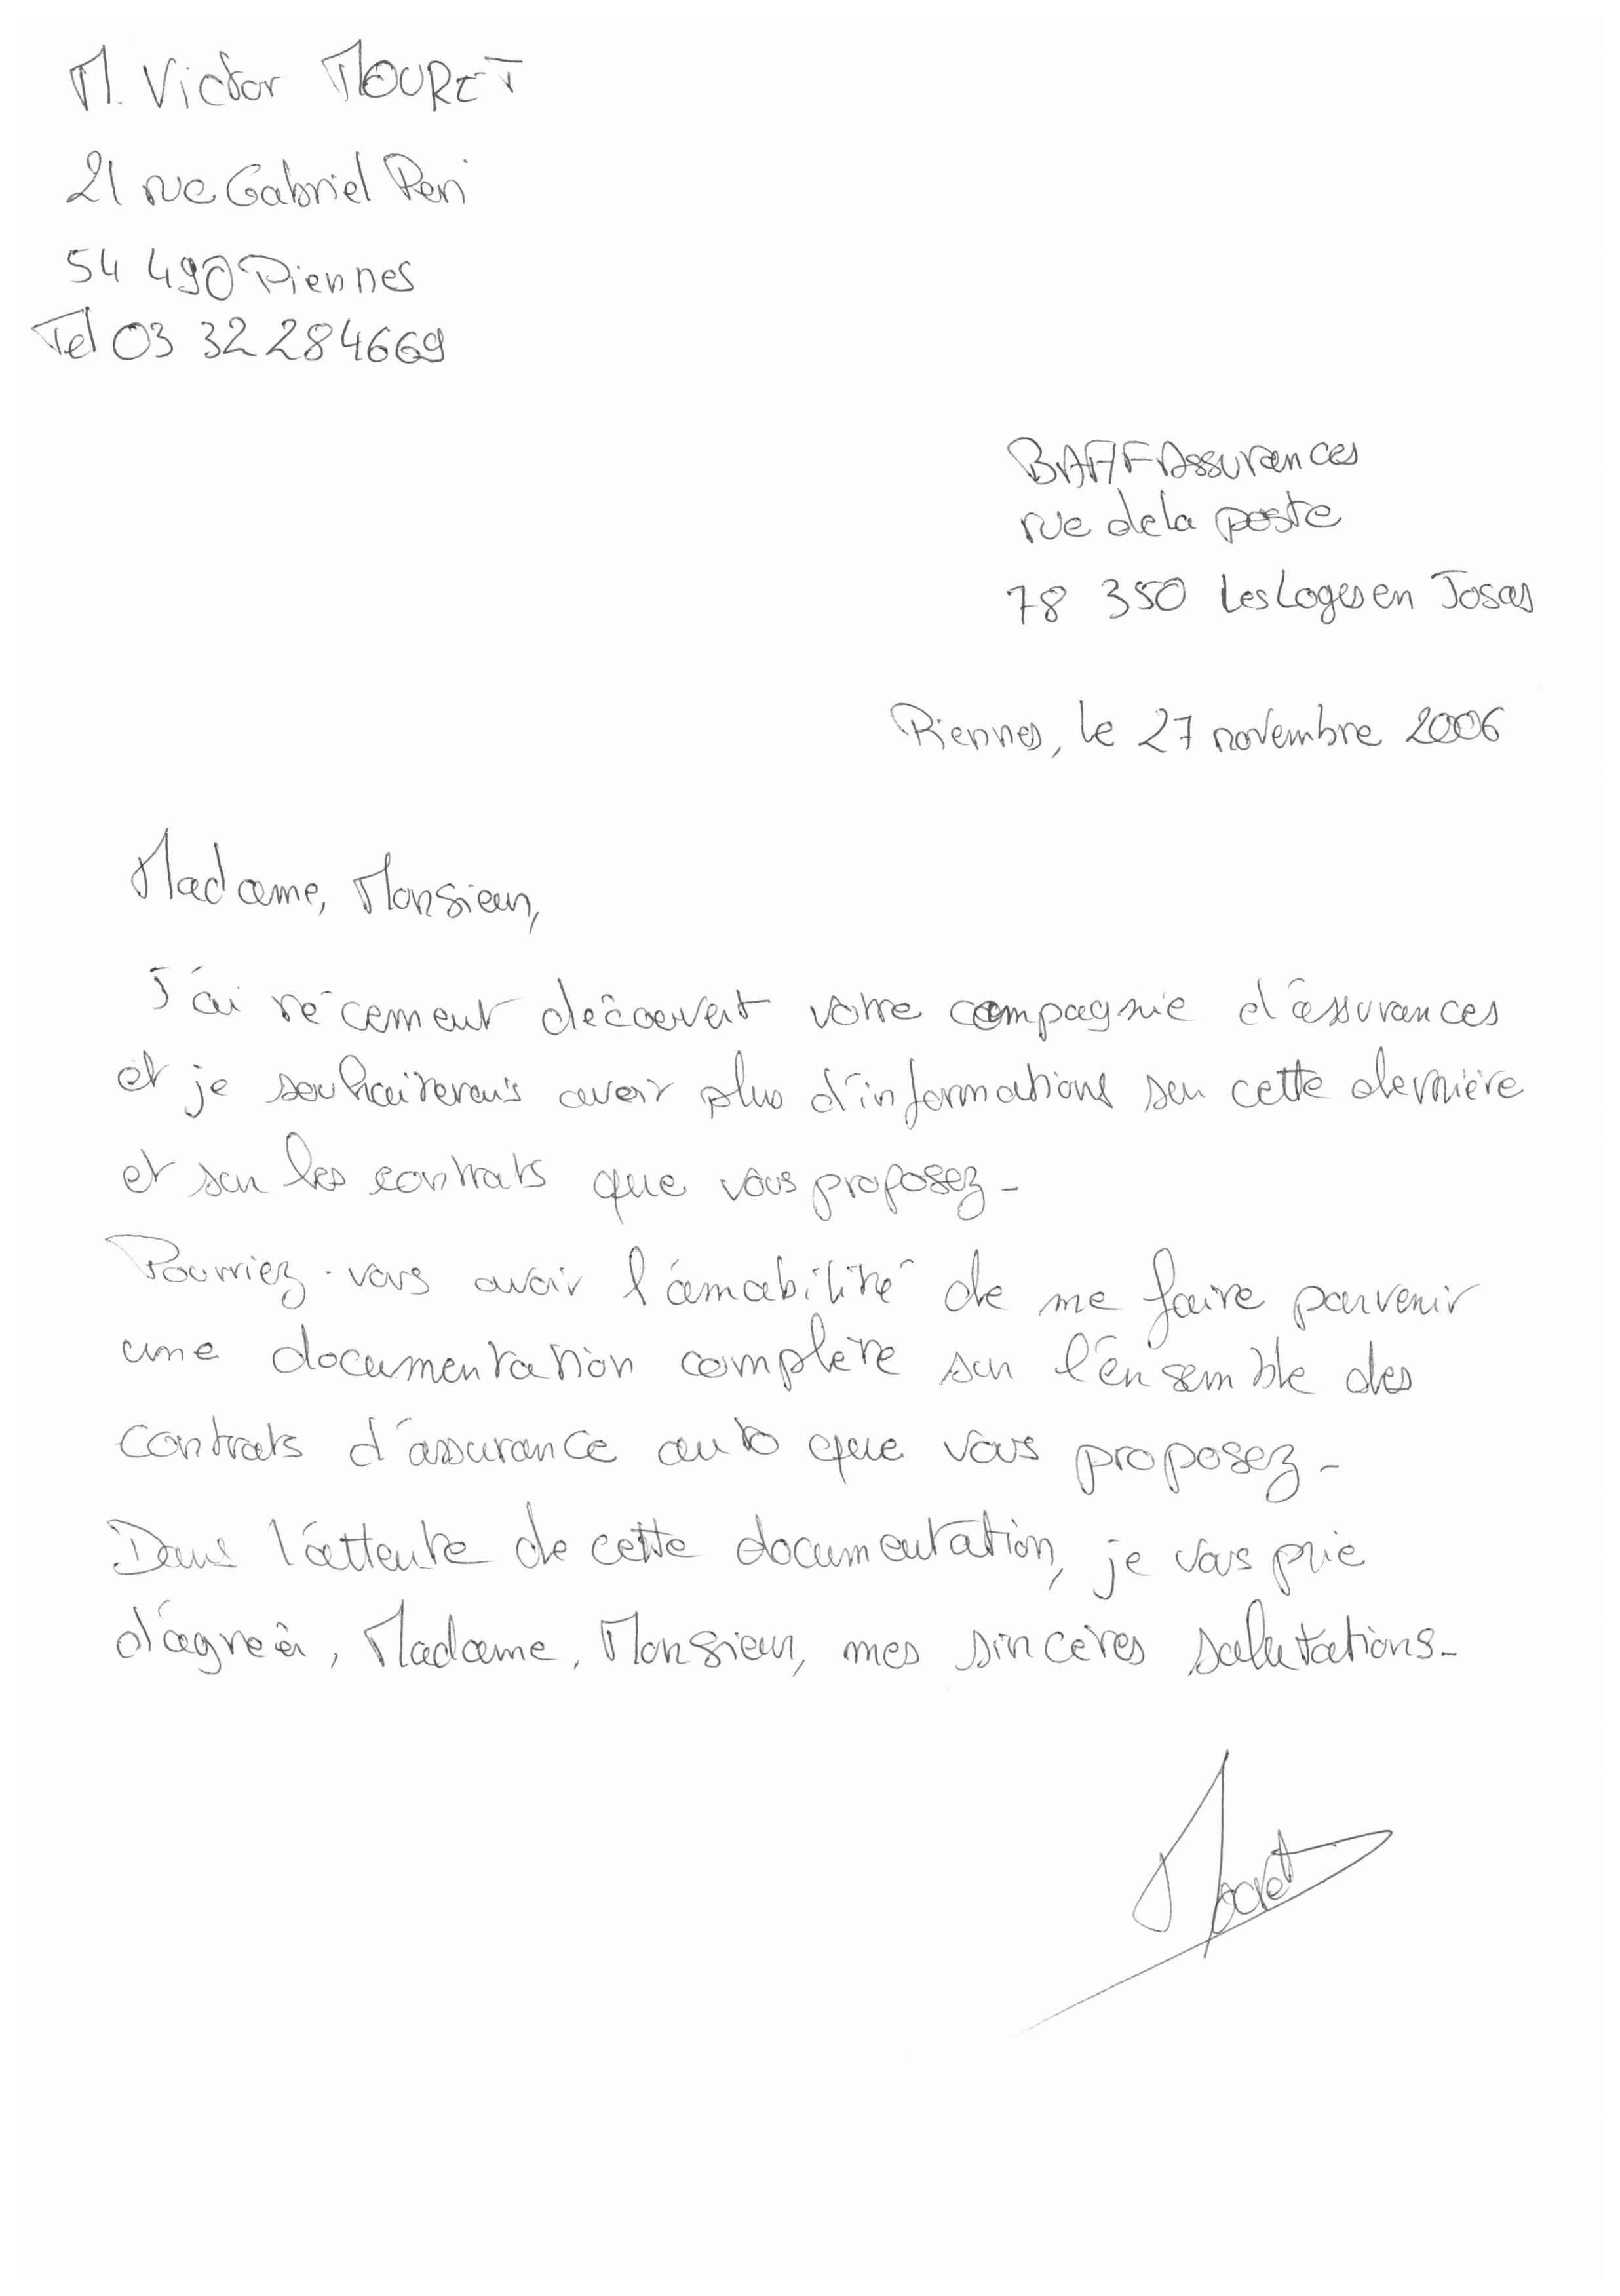 M. Victor MOURET
21 rue Gabriel Peri
54 490 Piennes
Tel 03 32 28 46 69
BAFF Assurances
rue de la poste
78 350 Les Loges en Josas
Piennes, le 27 novembre 2006
Madame, Monsieur,
J'ai récement découvert votre compagnie d'assurances
et je souhaiterais avoir plus d'informations sur cette dernière
et sur les contrats que vous proposez.
Pourriez-vous avoir l'amabilité de me faire parvenir
une documentation complète sur l'ensemble des
contrats d'assurance auto que vous proposez.
Dans l'attente de cette documentation, je vous prie
d'agréer, Madame, Monsieur, mes sincères salutations.
Mouret